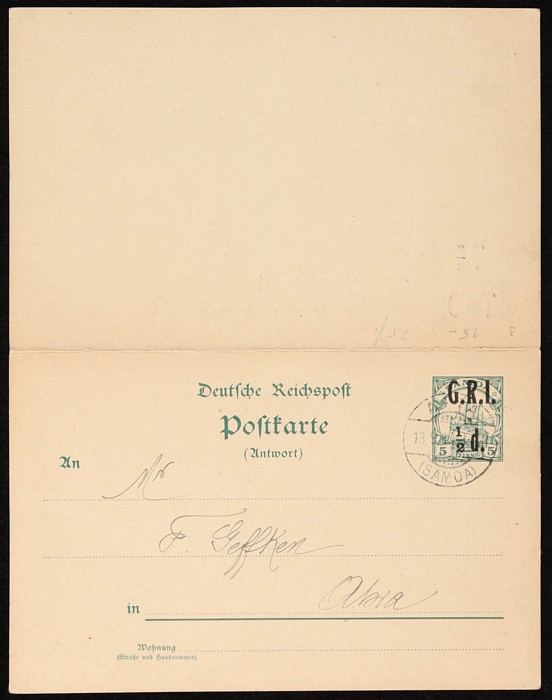 3 15- 75/1
Deutsche Reichspost
Postkarte
(Antwort)
G.R.I.
½ d.
5 5
13
(SAMOA)
An Mr
F. Geffken
in Apia
Wohnung
(Straße und Hausnummer)